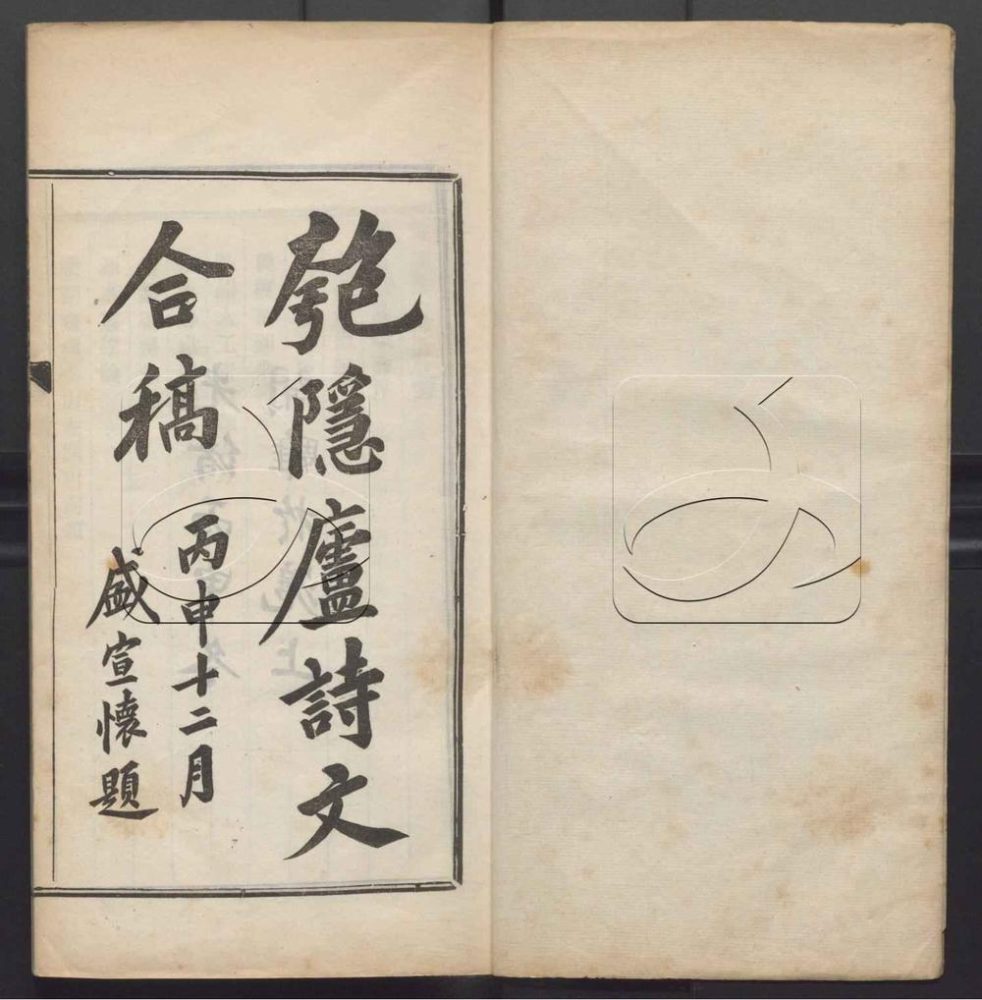 匏隱廬詩文
合稿
丙申十二月
盛宣懷題